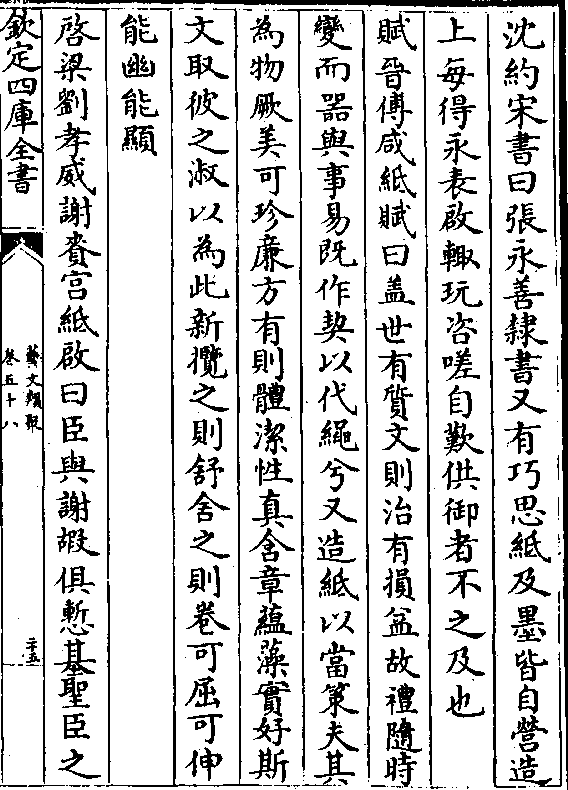 沈約宋書曰張永善隸書又有巧思紙及墨皆自營造
上每得永表啟輙玩咨嗟自歎供御者不之及也
賦晉傅咸紙賦曰盖世有質文則治有損益故禮隨時
變而器與事易既作契以代繩兮又造紙以當策夫其
為物厥美可珍廉方有則體潔性真含章蘊藻實好斯
文取彼之淑以為此新攬之則舒舍之則卷可屈可伸
能幽能顯
啓梁劉孝威謝賚宫紙啟曰臣與謝嘏俱慙基聖臣之
欽定四庫全書
藝文類聚
卷五十八
二十五